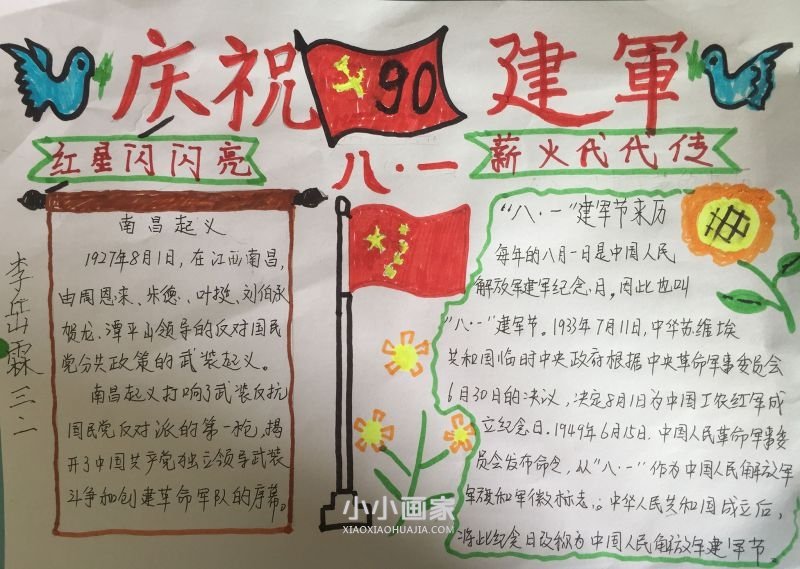 庆祝 90 建軍
红星闪闪亮
八·一
薪火代代传
南昌起义
1927年8月1日,在江西南昌,
由周恩来、朱德、叶挺、刘伯承
贺龙、谭平山领导的反对国民
党分共政策的武装起义。
南昌起义打响了武装反抗
国民党反对派的第一枪,揭
开了中国共产党独立领导武装
斗争和创建革命军队的序幕。
李岳霖 三.二
“八·一”建军节来历
每年的八月一日是中国人民
解放军建军纪念日。因此也叫
“八·一”建军节。1933年7月11日,中华苏维埃
共和国临时中央政府根据中央革命军事委员会
6月30日的决议,决定8月1为中国工农红军成
立纪念日。1949年6月15日,中国人民革命军事委
员会发布命令,从“八·一”作为中国人民解放军
军旗和军徽标志。中华人民共和国成立后,
将此纪念日改称为中国人民解放军建军节。
小小画家
XIAOXIAOHUAJIA.COM